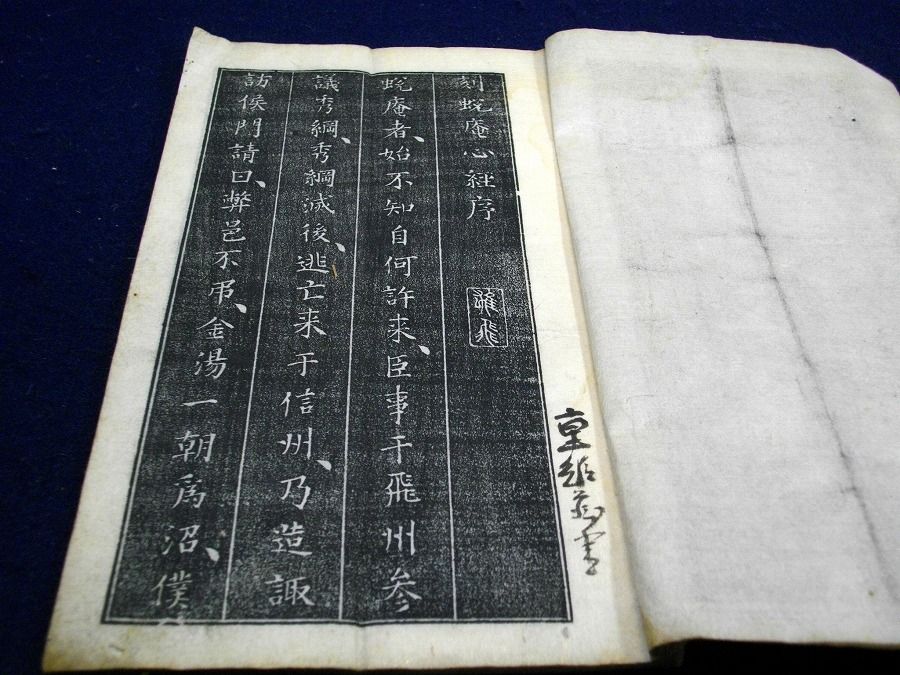 刻蛻庵心経序
蛻庵者、始不知自何許来、臣事于飛州参
議秀綱、秀綱滅後、逃亡来于信州、乃造諏
訪侯門請曰、弊邑不弔、金湯一朝為沼、僕